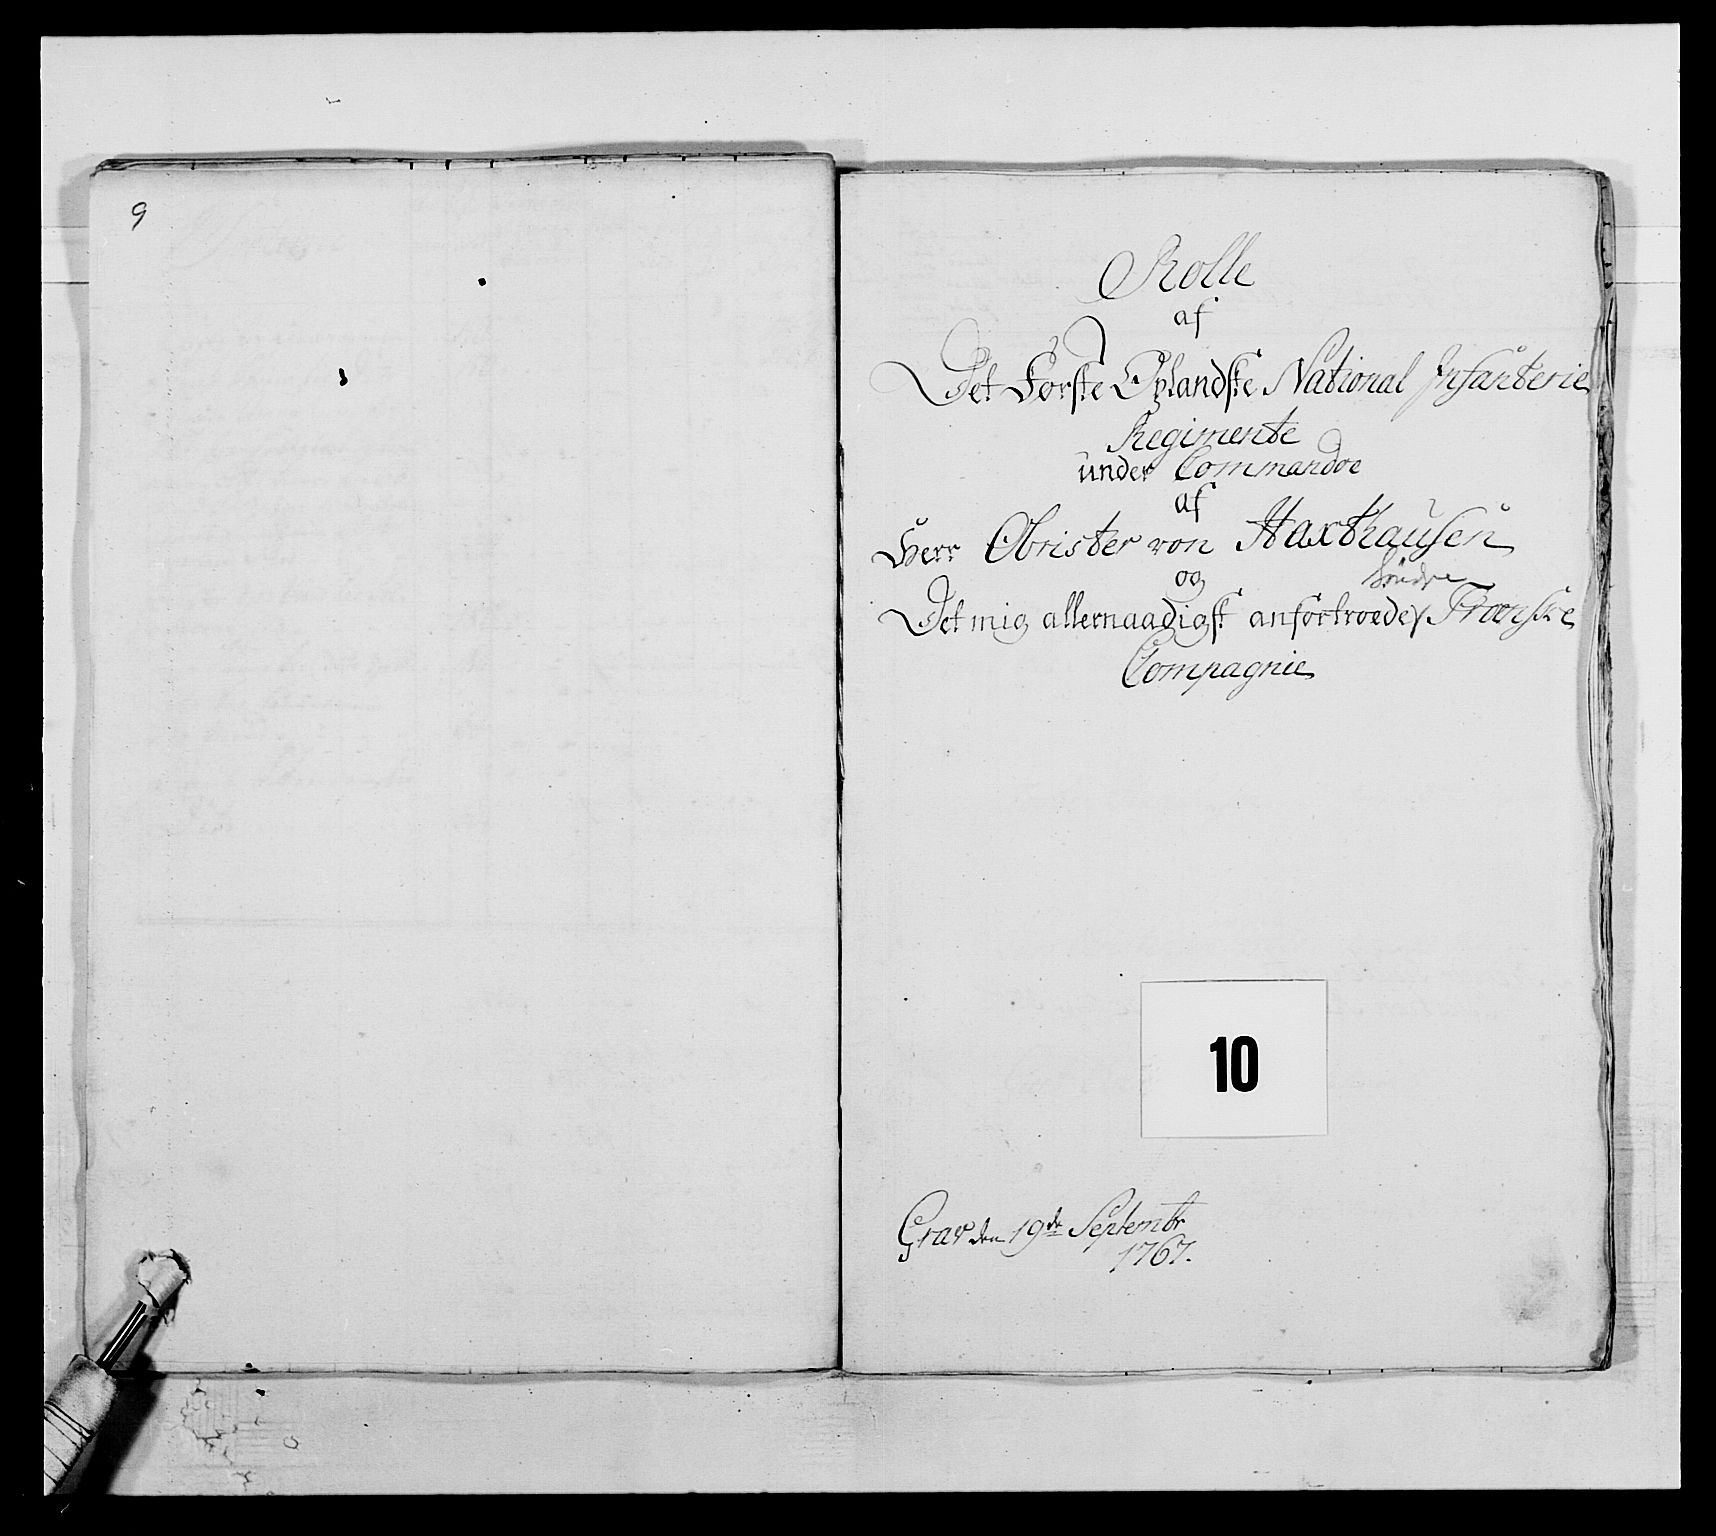 9
Rolle
af
Det Første Oplandske National Infanterie
Regimente
under Commandoe
af
Herr Obrister von Haxthausen
og
Søndre
Det mig allernaadigst anfortroede Trønske
Compagnie
10
Grav den 19de Septembr
1767.